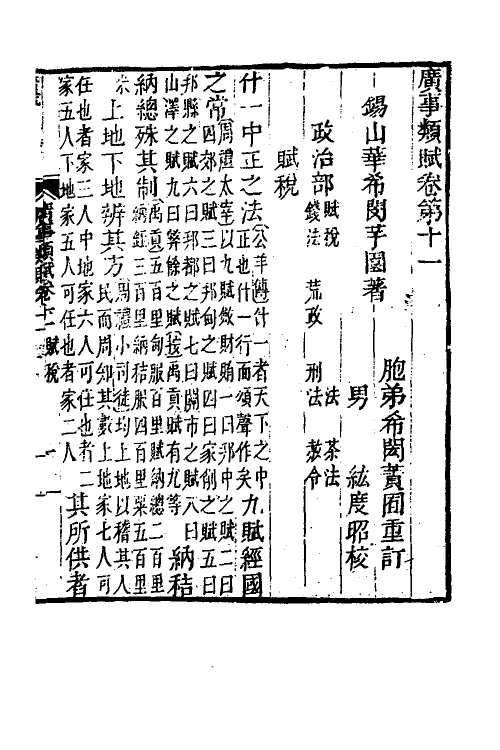 廣事類賦卷第十一
錫山華希閔芋園著
胞弟希閎蕡園重訂
男　紘度昭校
政治部
賦稅　法　茶法
錢法　荒政　刑法　教令
賦稅
什一中正之法
公羊傳什一者天下之中
正也什一行而頌聲作矣
九賦經國
之常
周禮太宰以九賦斂財賄一曰邦中之賦二曰
四郊之賦三曰邦甸之賦四曰家削之賦五曰
邦縣之賦六曰邦都之賦七曰關市之賦八曰
山澤之賦九曰弊餘之賦按禹貢賦有九等
納秸
納總殊其制
禹貢五百里甸服百里賦納總二百里
納銍三百里納秸服四百里粟五百里
米
上地下地辨其方
周禮小司徒均土地以稽其人
民而周知其數上地家七人可
任也者家三人中地家六人可任也者二
家五人下地家五人可任也者家二人
其所供者
廣事類賦卷十一　賦稅　一